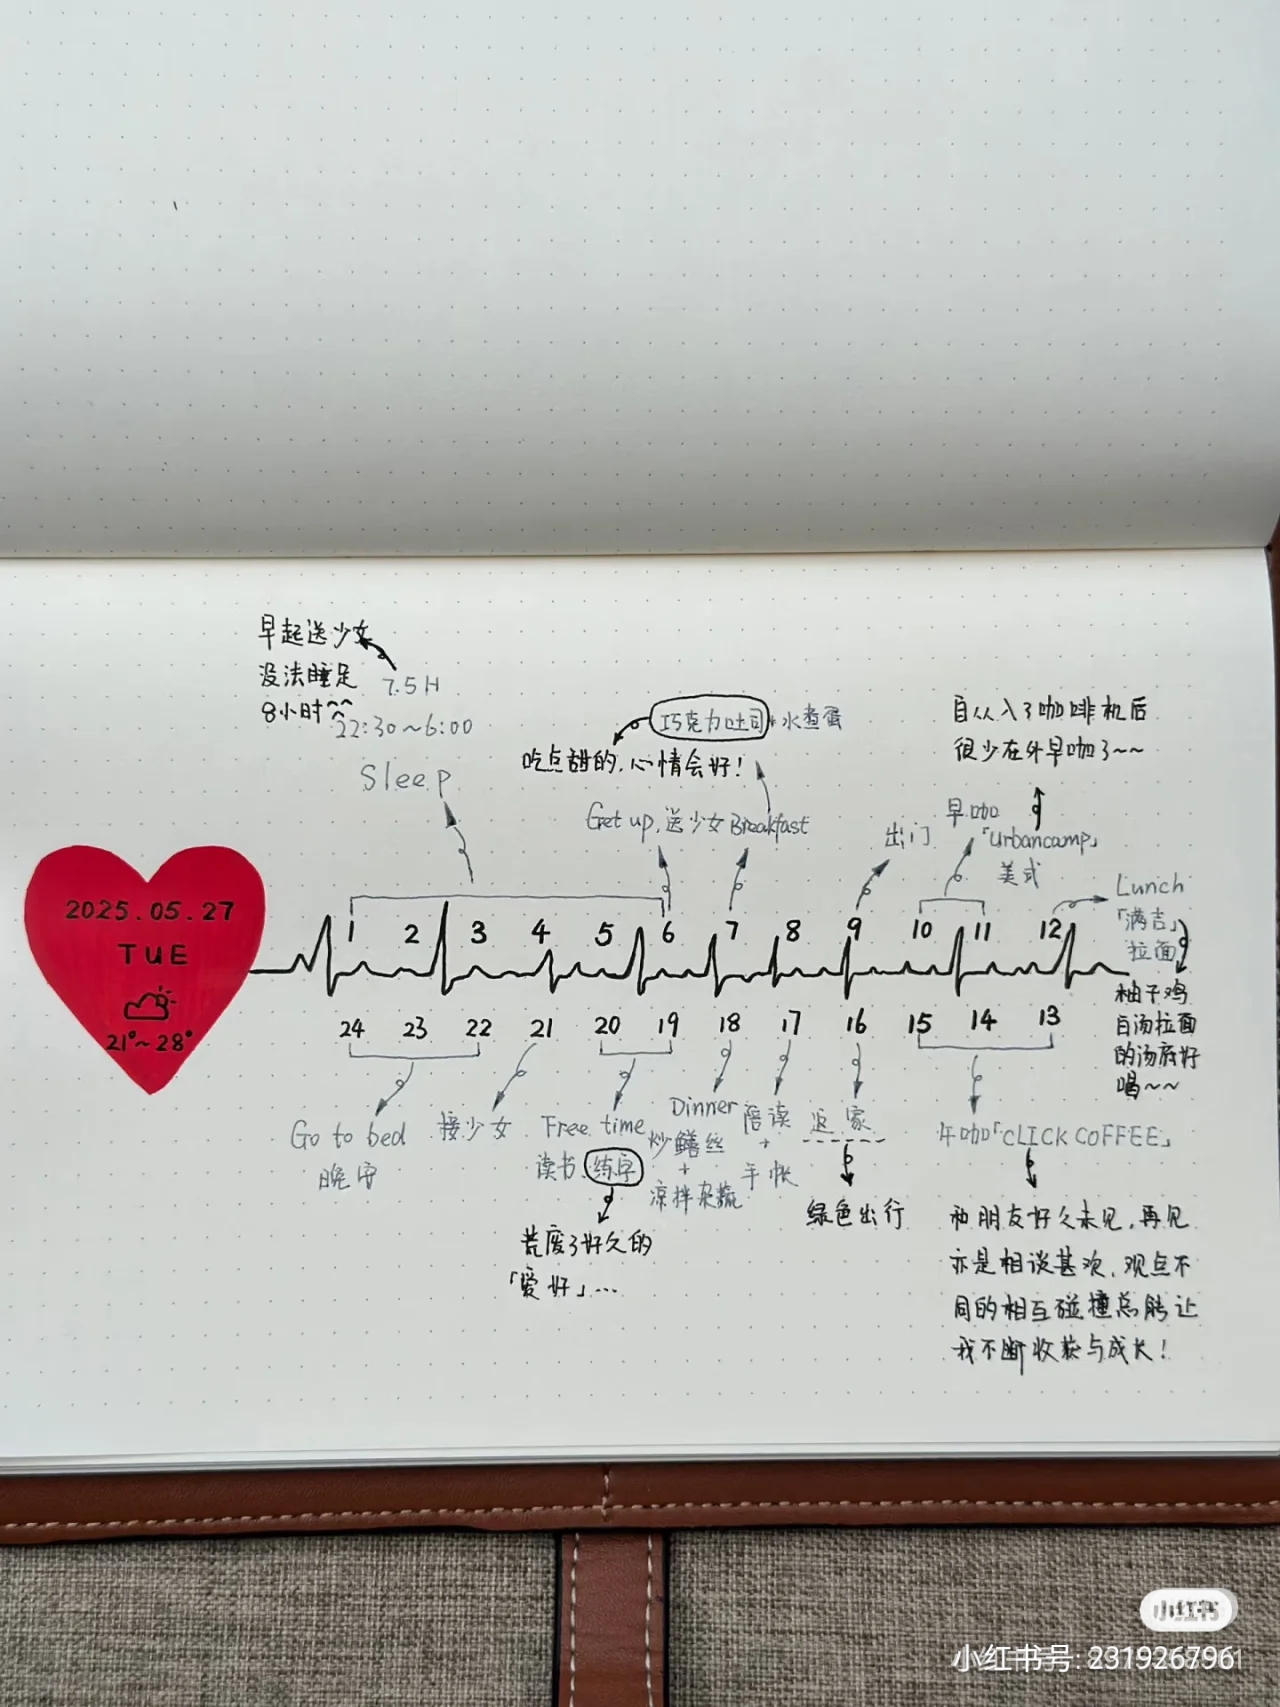 早起送少女
没法睡足
8小时~~
7.5H
22:30~6:00
Sleep
巧克力吐司+水煮蛋
吃点甜的,心情会好!
Get up,送少女 Breakfast
出门
自从入了咖啡机后
很少在外早咖了~~
早咖
「Urbancamp」
美式
Lunch
「满吉」
拉面
柚子鸡
白汤拉面
的汤底好
喝~~
2025.05.27
TUE
21°~28°
1 2 3 4 5 6 7 8 9 10 11 12
24 23 22 21 20 19 18 17 16 15 14 13
Go to bed
晚安
接少女
Free time
读书、练字
荒废了好久的
「爱好」...
Dinner
炒鳝丝
+
凉拌杂蔬
陪读
+
手帐
返家
绿色出行
午咖「CLICK COFFEE」
和朋友好久未见,再见
亦是相谈甚欢,观点不
同的相互碰撞总能让
我不断收获与成长!
小红书
小红书号: 2319267961